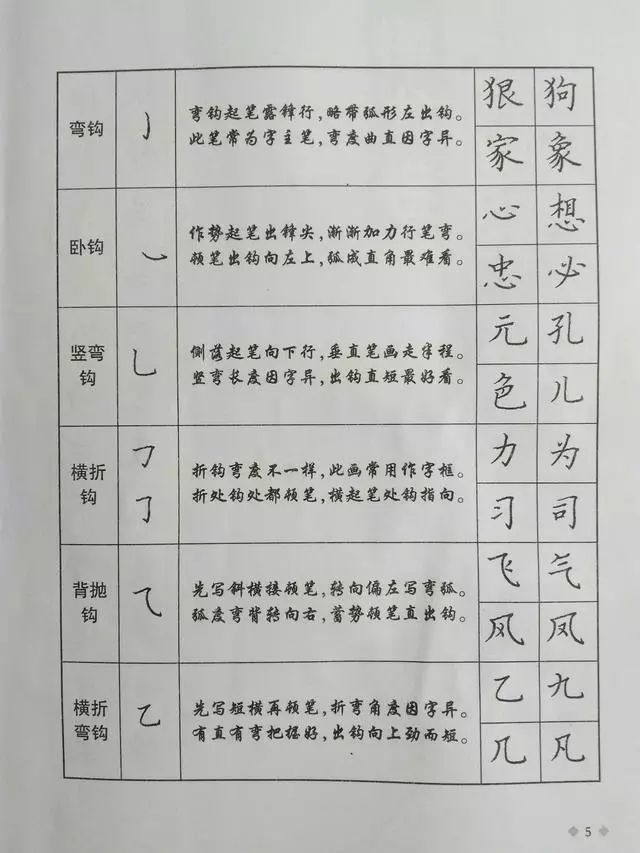 弯钩
㇁
弯钩起笔露锋行,略带弧形左出钩。
此笔常为字主笔,弯度曲直因字异。
狠 狗
家 象
卧钩
㇃
作势起笔出锋尖,渐渐加力行笔弯。
顿笔出钩向左上,弧成直角最难看。
心 想
忠 必
竖弯
钩
乚
侧落起笔向下行,垂直笔画走半程。
竖弯长度因字异,出钩直短最好看。
元 孔
色 儿
横折
钩
㇆
㇆
折钩弯度不一样,此画常用作字框。
折处钩处都顿笔,横起笔处钩指向。
力 为
习 司
背抛
钩
⺄
先写斜横接顿笔,转向偏左写弯弧。
弧度弯背转向右,蓄势顿笔直出钩。
飞 气
风 凤
横折
弯钩
乙
先写短横再顿笔,折弯角度因字异。
有直有弯把握好,出钩向上劲而短。
乙 九
几 凡
5